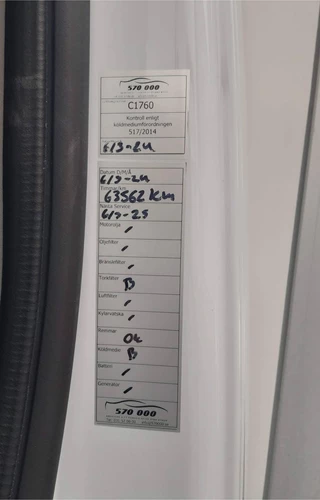 570 000
C1760
Kontroll enligt
köldmediumförordningen
517/2014
Datum D/M/Å
Timmar/km
63562 km
Nästa Service
Motorolja
Oljefilter
Bränslefilter
Torkfilter
B
Luftfilter
Kylarvätska
Remmar
OK
Köldmedie
B
Batteri
Generator
570 000